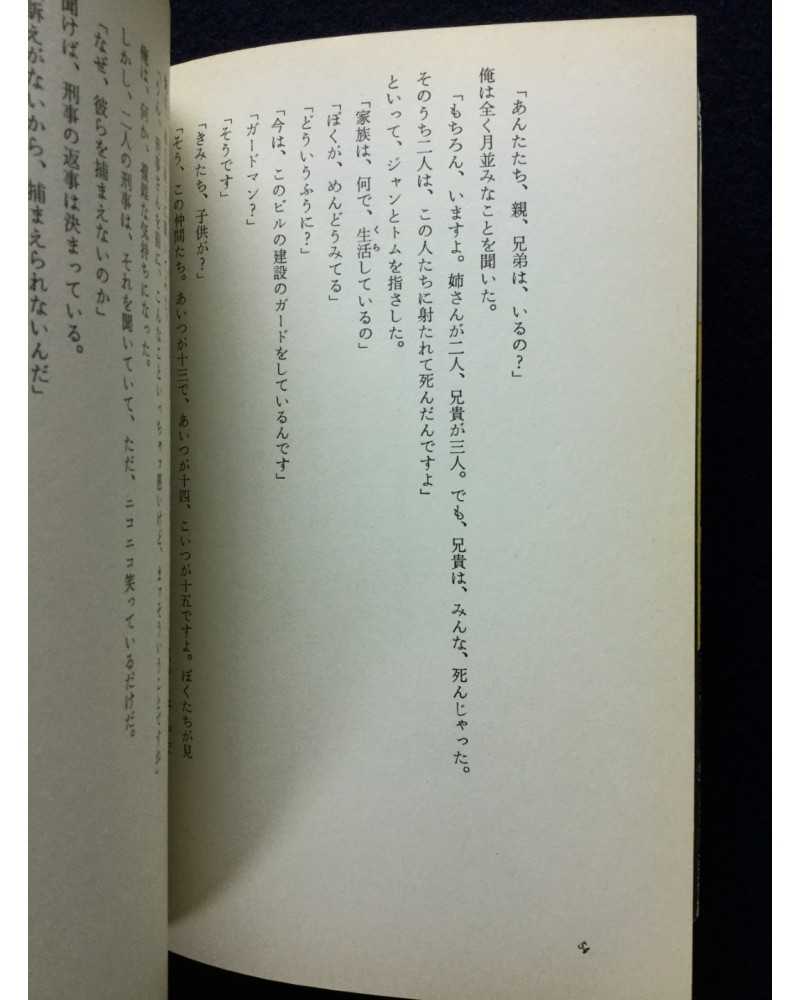 「あんたたち、親、兄弟は、いるの？」
俺は全く月並みなことを聞いた。
「もちろん、いますよ。姉さんが二人、兄貴が三人。でも、兄貴は、みんな、死んじゃった。
そのうち二人は、この人たちに射たれて死んだんですよ」
といって、ジャンとトムを指さした。
「家族は、何で、生活しているの」
くち
「ぼくが、めんどうみてる」
「どういうふうに？」
「今は、このビルの建設のガードをしているんです」
「ガードマン？」
「そうです」
「きみたち、子供が？」
「そう、この仲間たち。あいつが十三で、あいつが十四、こいつが十五ですよ。ぼくたちが見
こんなこといっちゃァ悪いけど、まァそういうことですが」
俺は、何か、複雑な気持ちになった。
しかし、二人の刑事は、それを聞いていて、ただ、ニコニコ笑っているだけだ。
「なぜ、彼らを捕まえないのか」
聞けば、刑事の返事は決まっている。
訴えがないから、捕まえられないんだ」